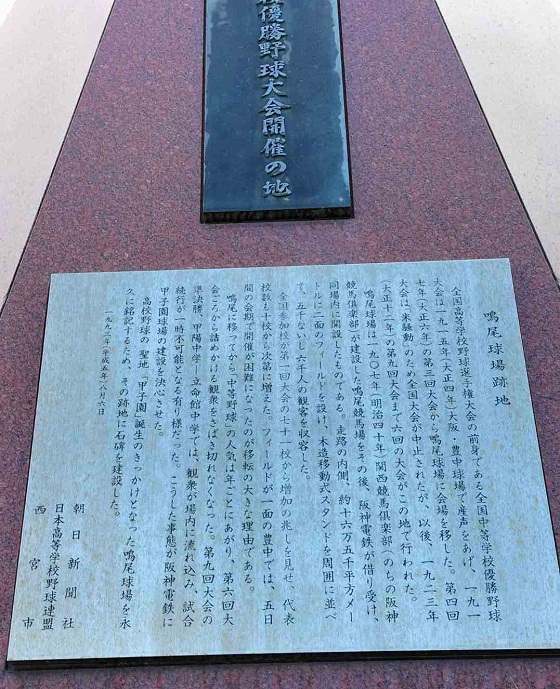 優勝野球大会開催の地
鳴尾球場跡地
全国高等学校野球選手権大会の前身である全国中等学校優勝野球
大会は一九一五年(大正四年)大阪・豊中球場で産声をあげ、一九一
七年(大正六年)の第三回大会から鳴尾球場に会場を移した。第四回
大会は米騒動のため全国大会が中止されたが、以後、一九二三年
(大正十二年)の第九回大会まで六回の大会がこの地で行われた。
鳴尾球場は一九〇七年(明治四十年)関西競馬倶楽部(のちの阪神
競馬倶楽部)が建設した鳴尾競馬場をその後、阪神電鉄が借り受け、
同場内に開設したものである。走路の内側、約十六万五千平方メー
トルに二面のフィールドを設け、木造移動式スタンドを周囲に並べ
て、五千ないし六千人の観客を収容した。
全国参加校が第一回大会の七十一校から増加の兆しを見せ、代表
校数も十校から次第に増えた。フィールドが一面の豊中では、五日
間の会期で開催が困難になったのが移転の大きな理由である。
鳴尾に移ってから「中等野球」の人気は年ごとにあがり、第六回大
会ごろから詰めかける観衆をさばき切れなくなった。第九回大会の
準決勝、甲陽中学―立命館中学では、観衆が場内に流れ込み、試合
続行が一時不可能となる有り様だった。こうした事態が阪神電鉄に
甲子園球場の建設を決心させた。
高校野球の聖地「甲子園」誕生のきっかけとなった鳴尾球場を永
久に銘記するため、その跡地に石碑を建設した。
一九九三年(平成五年)八月六日
朝日新聞社
日本高等学校野球連盟
西宮市